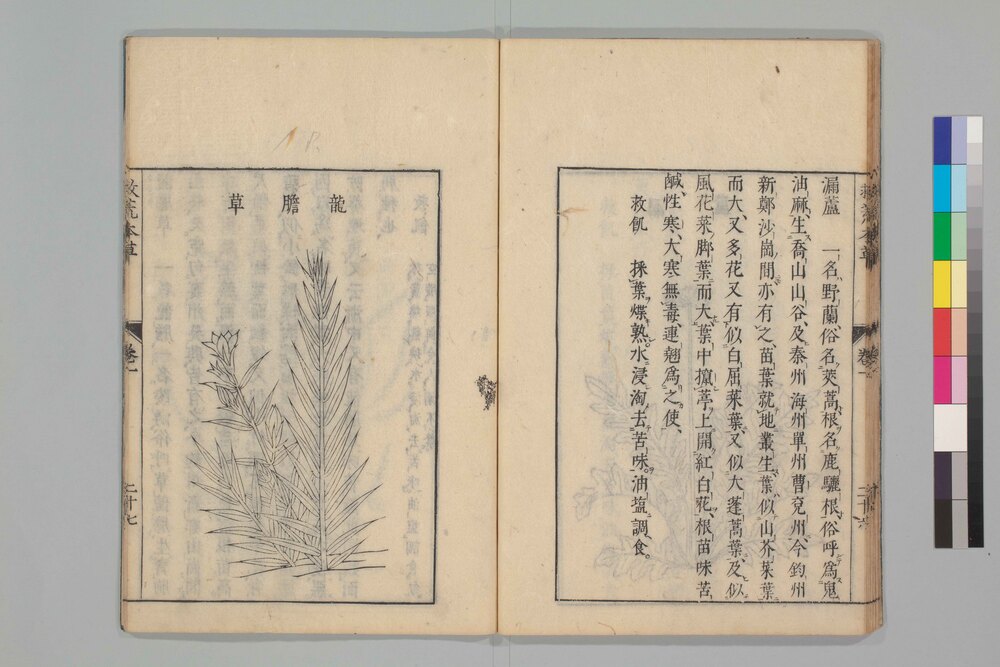 漏蘆 一名野蘭俗名莢蒿根名鹿驪根俗呼爲鬼
油麻生喬山山谷及秦州海州單州曹兗州今鈞州
新鄭沙崗間亦有之苗葉就地叢生葉似山芥菜葉
而大又多花又有似白屈菜葉又似大蓬蒿葉及似
風花菜脚葉而大葉中攛葶上開紅白花根苗味苦
鹹性寒大寒無毒連翹爲之使
救飢 採葉煠熟水浸淘去苦味油塩調食
龍膽草
救荒本草
卷一
二十七